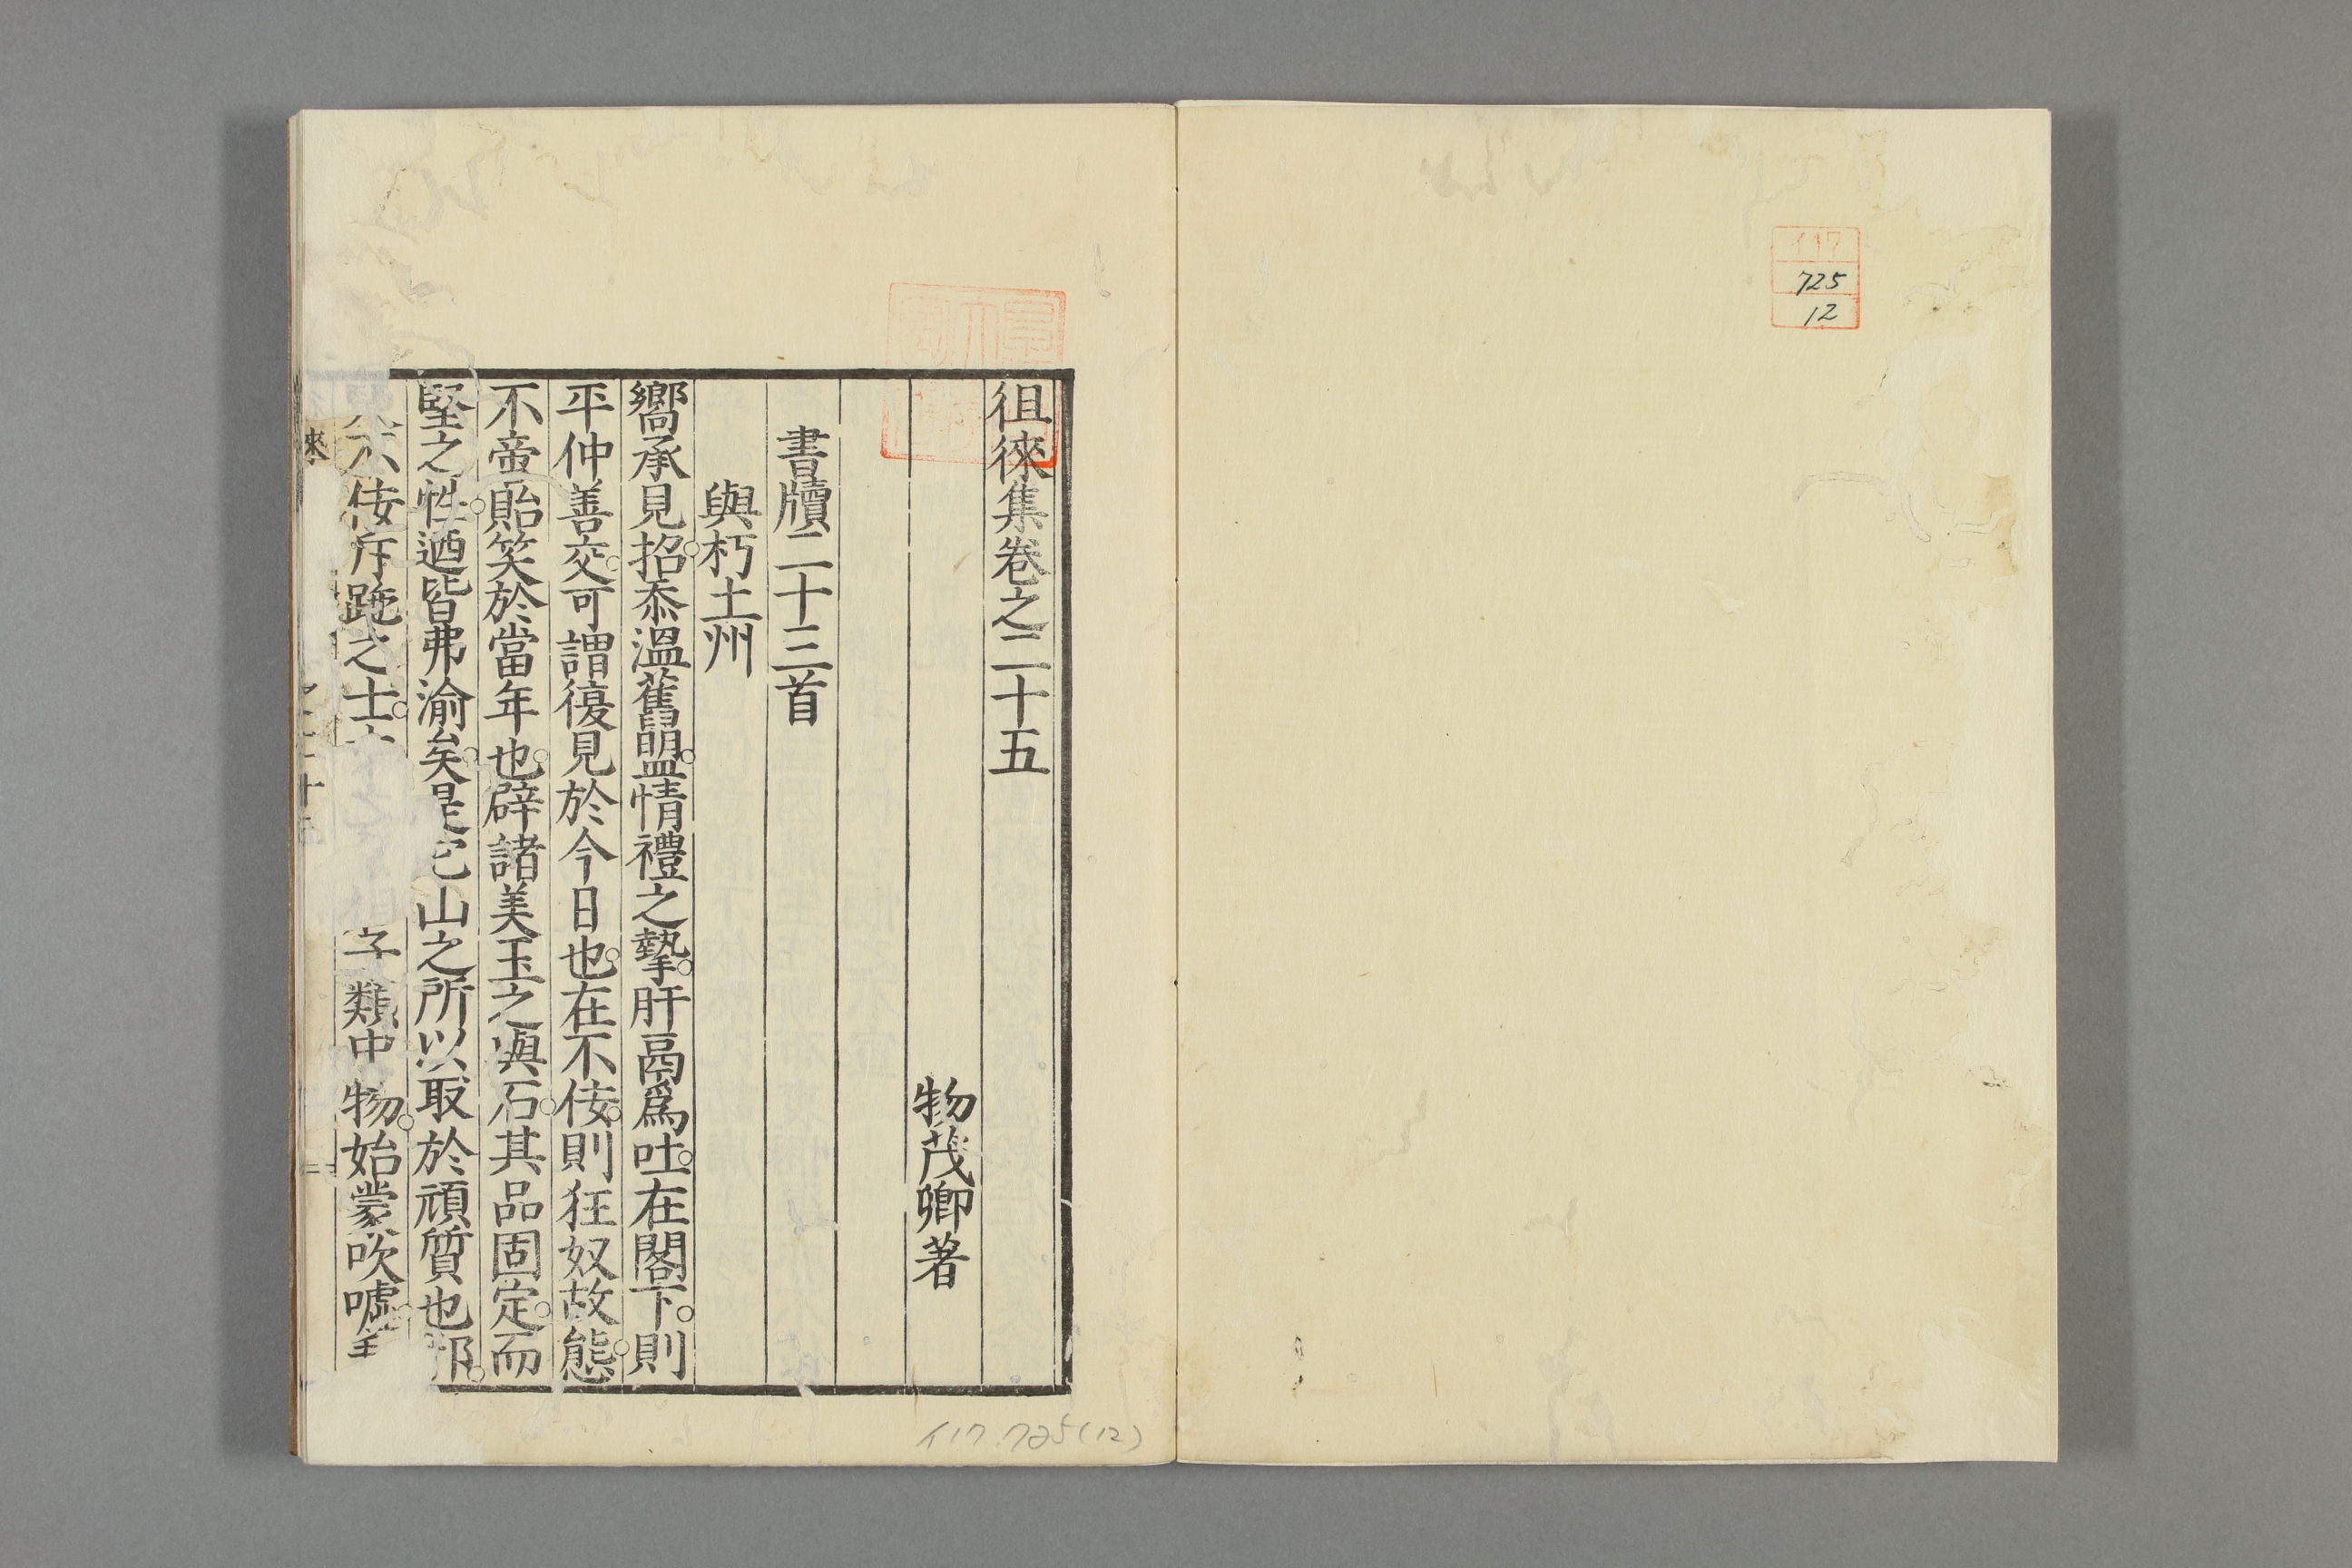 イ17
725
12
徂徠集卷之二十五
物茂卿著
書牘二十三首
與朽土州
嚮承見招。忝溫舊盟。情禮之摯。肝鬲爲吐。在閣下。則
平仲善交。可謂復見於今日也。在不佞。則狂奴故態。
不啻貽笑於當年也。辟諸美玉之與石。其品固定。而
堅之性。迺皆弗渝矣。是它山之所以取於頑質也邪。
佞斥跑之士。 子類中物。始蒙吹噓。
徠
イ17 725(12)